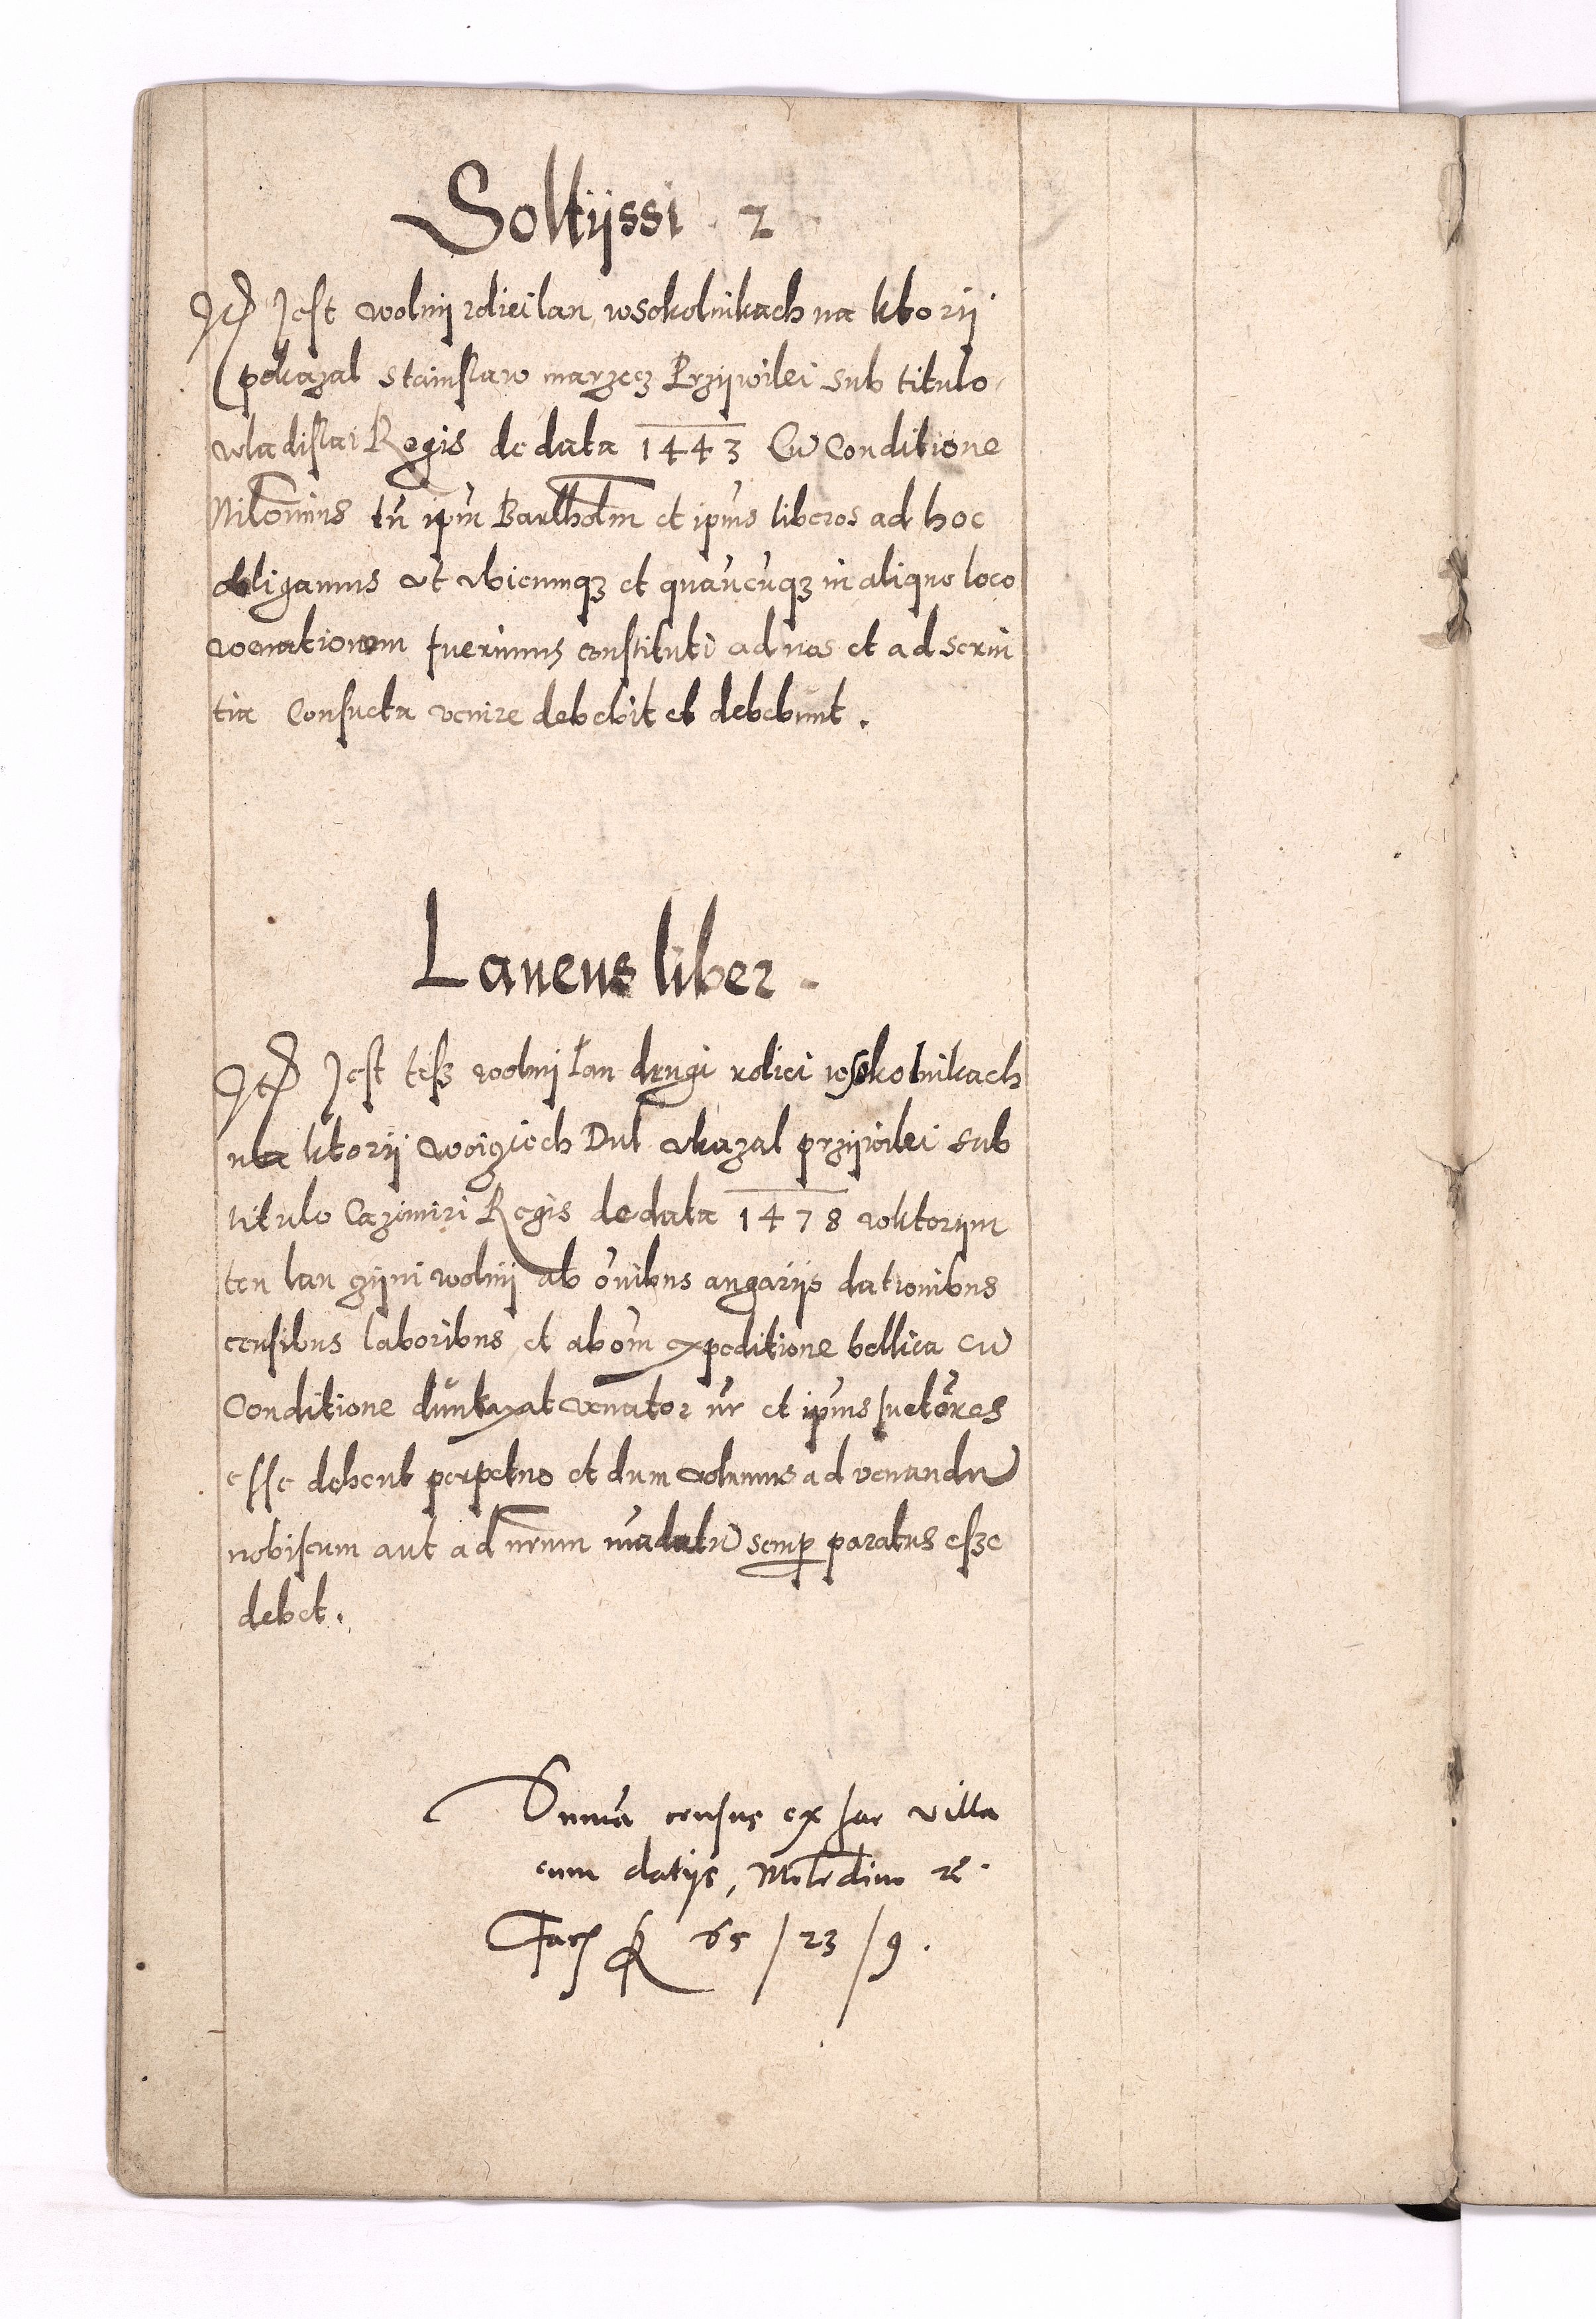 Soltijssi 2
Itē Jest wolnij rolieilan, wsokolnikach na ktorij
pokazal Stanislaw marzecz Przijwilei sub titulo
wladislai Regis de data 1443 Cū Conditione
Nilōmins tn̄ ipm̄ Bartholm̄ et ipīus liberos ad hoc
obligamus ut ubicumqz et quan̄cūqz in aliquo loco
venationem fuerimus constituti ad nos et ad servi
tia Consueta venire debebit et debebunt.
Laneus liber
Itē Jest tesz wolnij lan drugi rolici wsokolnikach
na ktorij woicziech Dul ukazal przijwilei sub
titulo Cazimiri Regis de data 1478 wktorijm
ten lan czijni wolnij ab om̄ibus angariis dationibus
censibus laboribus, et ab om̄i expeditione bellica cū
Conditione dūntaxat venator nr̄ et ipīus suctōres
esse debent perpetuo et dum volumus ad venandū
nobiscum aut ad nr̄um mādatū semp paratus esze
debet.
Sumā census ex hac villa
cum datijs, Molēdino
Facit 65 / 23 / 9.